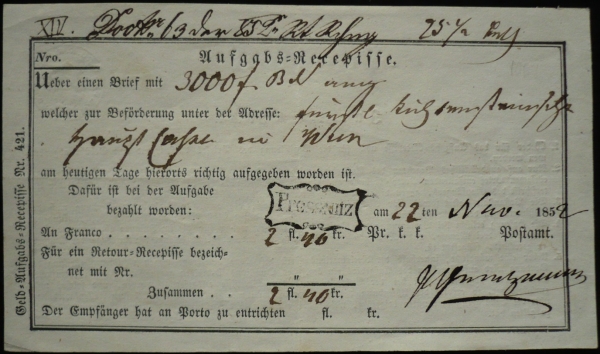 XIV.
Nro. Aufgabs-Recepisse.
Ueber einen Brief mit 3000 f BN
welcher zur Beförderung unter der Adresse: fürstl
Haupt Casse in Wien
am heutigen Tage hierorts richtig aufgegeben worden ist.
Dafür ist bei der Aufgabe
bezahlt worden:
am 22ten Nov. 1852
An Franco . . . . . . . . . 2 fl. 40 kr. Pr. k. k. Postamt.
Für ein Retour-Recepisse bezeich-
net mit Nr. " "
Zusammen . . 2 fl. 40 kr.
Der Empfänger hat an Porto zu entrichten fl. kr.
Geld-Aufgabs-Recepisse Nr. 421.